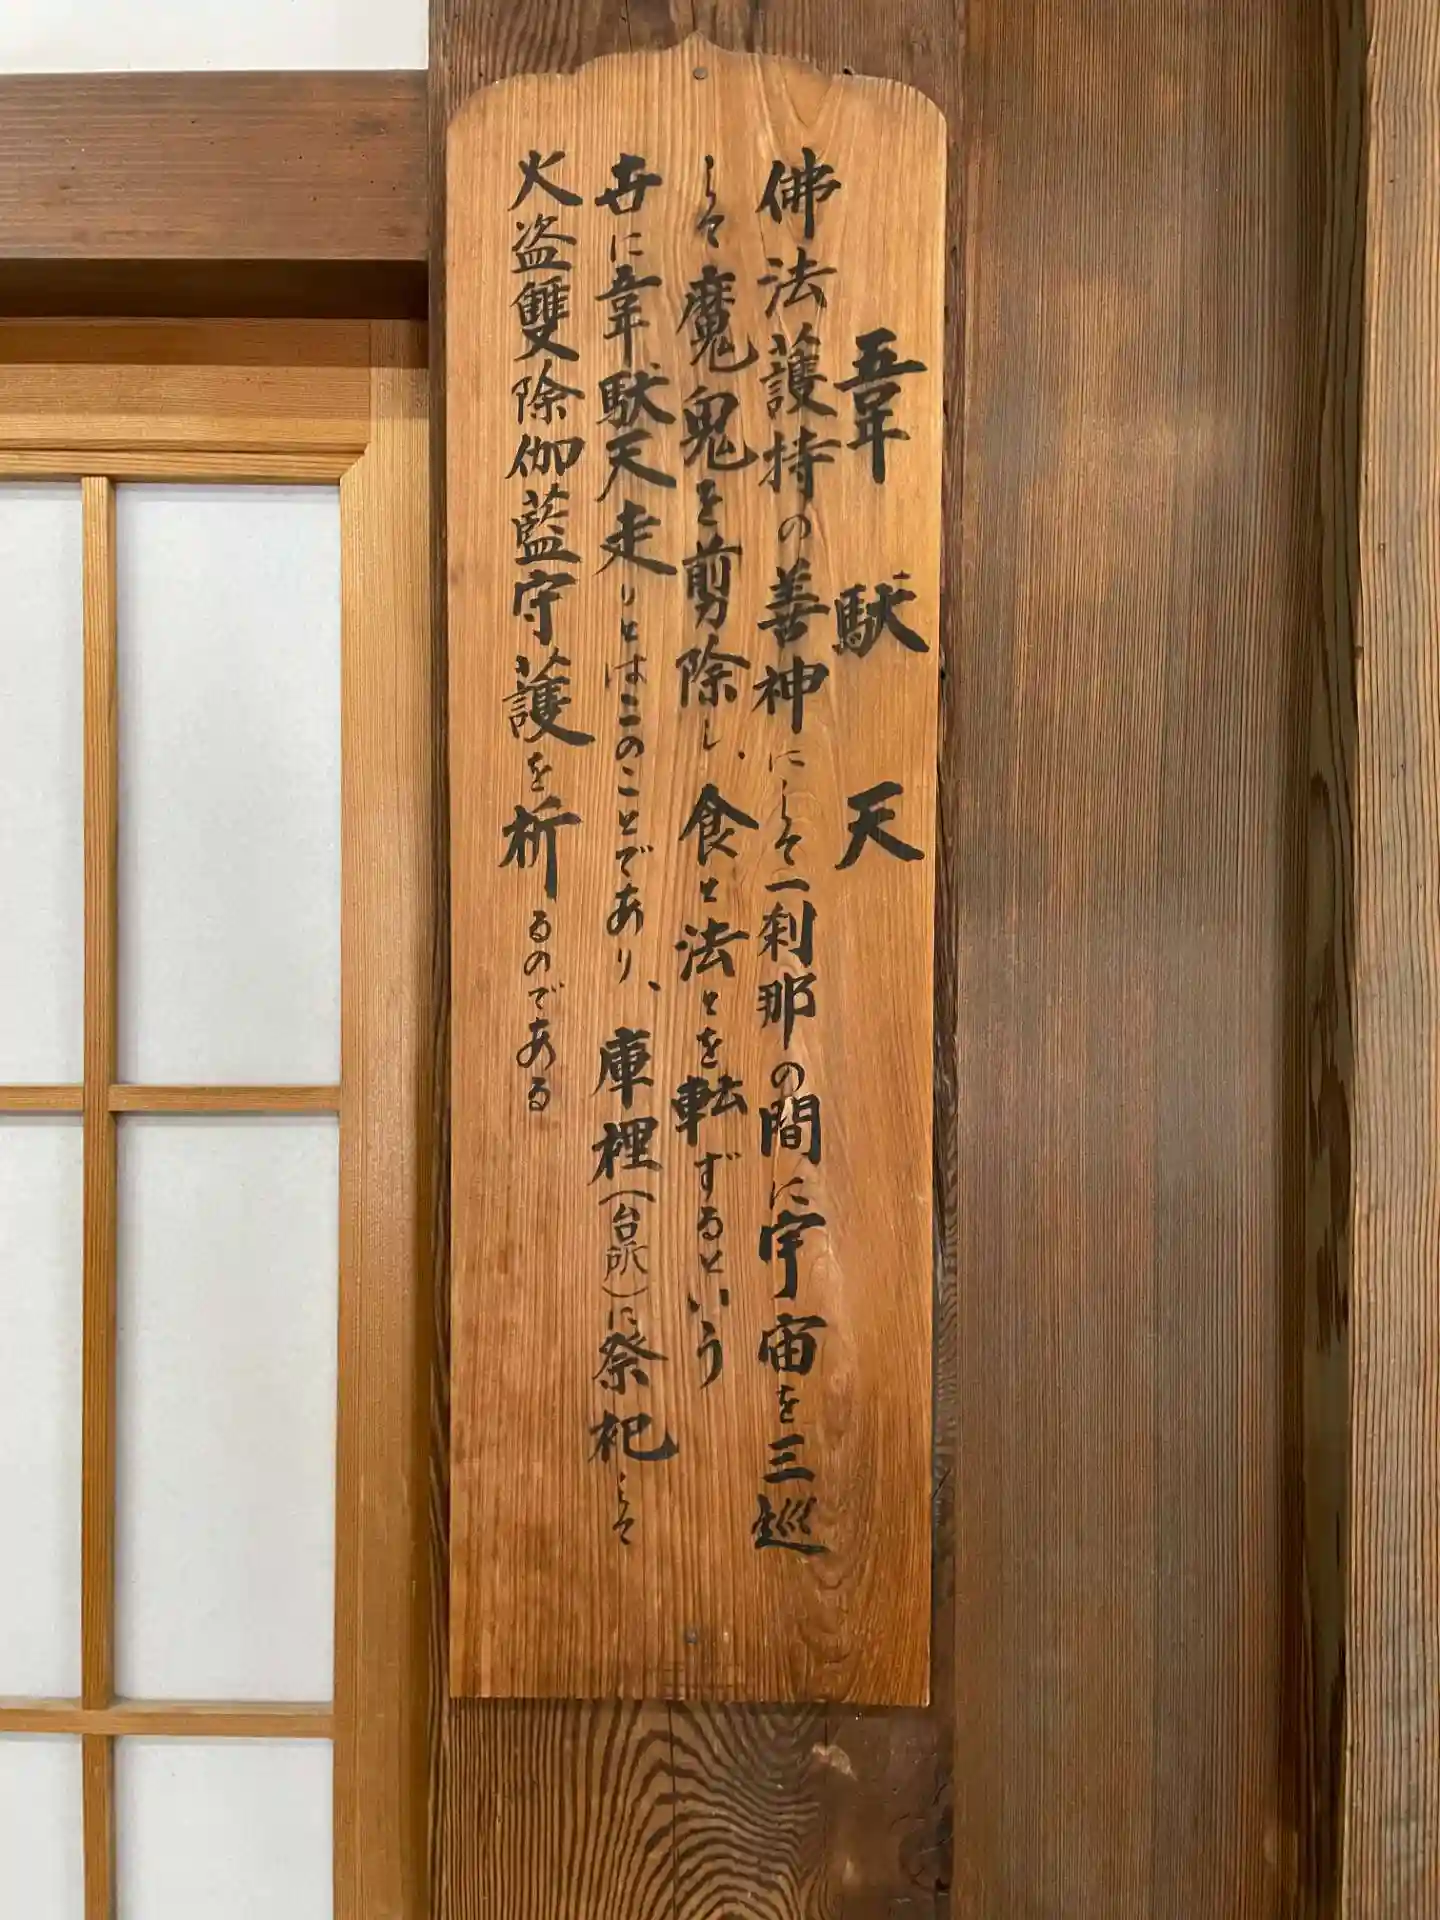 韋馱天
佛法護持の善神にして一刹那の間に宇宙を三巡
して魔鬼を剪除し、食と法とを転ずるという
世に韋馱天走りとはこのことであり、庫裡(台所)に祭祀して
火盗雙除伽藍守護を祈るのである